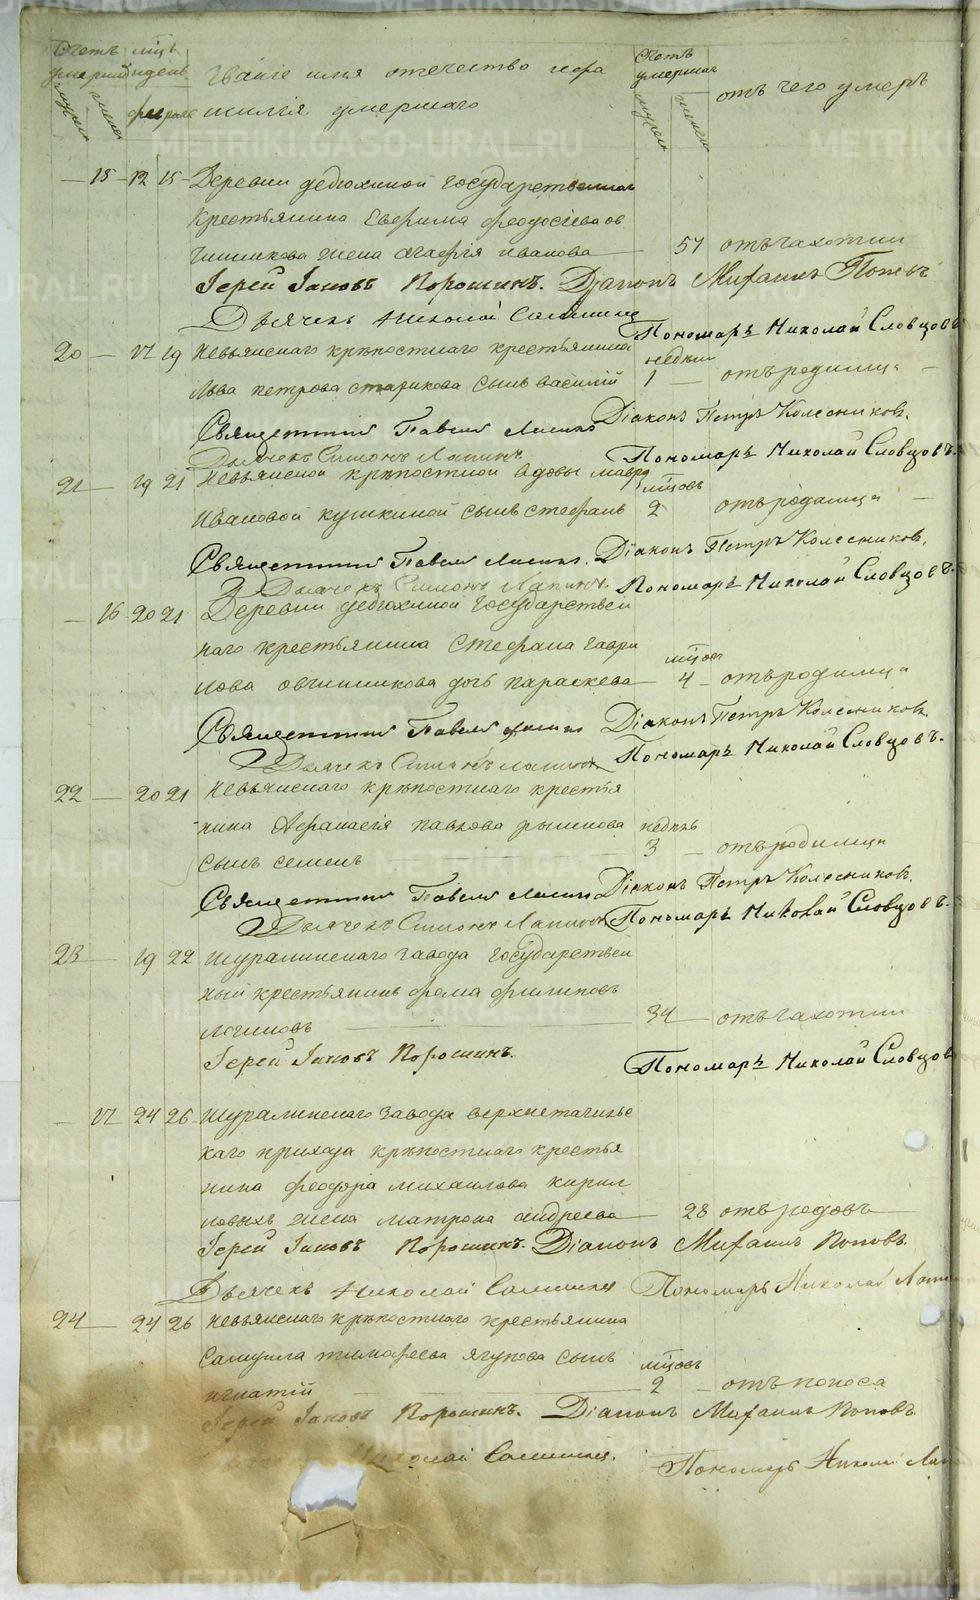 Счетъ умершихъ
мужеск женск
мцъ и день
февраль
Званіе имя отечество и фамилія умершаго
Счетъ умершаго
мужеск женск
отъ чего умеръ
— 15 — 12 15 — Деревни Федюхиной государственнаго
крестьянина Евфима Феодосіева ов
чинникова жена Агафія Иванова — 57 отъ чахотки
Іерей Іаковъ Порошинъ. Діаконъ Михаилъ Поповъ
Дьячекъ Николай
Пономарь Николай Словцовъ
20 — 17 19 Невьянскаго крѣпостнаго крестьянина
недѣли
Льва Петрова Старикова сынъ Василій 1 — отъ родимца —
Священникъ Павелъ Діаконъ Петръ Колесниковъ.
Дьячекъ Симонъ Лапинъ
Пономарь Николай Словцовъ.
21 — 19 21 Невьянской крѣпостной вдовы Мавры
мцовъ
Ивановой Кушкиной сынъ Стефанъ 2 отъ родимца —
Священникъ Павелъ Діаконъ Петръ Колесниковъ.
Дьячекъ Симонъ Лапинъ
Пономарь Николай Словцовъ.
— 16 20 21 Деревни Федюхиной государствен
наго крестьянина Стефана Гаври
мцовъ
лова Овчинникова дочь Параскева — 4 — отъ родимца
Священникъ Павелъ Діаконъ Петръ Колесниковъ
Дьячекъ Симонъ Лапинъ
Пономарь Николай Словцовъ.
22 — 20 21 Невьянскаго крѣпостнаго крестья
нина Афанасія Павлова недѣль
сынъ Семенъ — 3 — отъ родимца
Священникъ Павелъ Діаконъ Петръ Колесниковъ.
Дьячекъ Симонъ Лапинъ
Пономарь Николай Словцовъ.
23 — 19 22 Шуралинскаго завода государствен
ный крестьянинъ Фома Филиповъ
Логиновъ — 34 — отъ чахотки
Іерей Іаковъ Порошинъ.
Пономарь Николай Словцов
— 17 24 26 Шуралинскаго завода Верхнетагильс
каго прихода крѣпостнаго крестья
нина Феодора Михаилова Кирил
ловыхъ жена Матрона Андреева — 28 отъ родовъ
Іерей Іаковъ Порошинъ. Діаконъ Михаилъ Поповъ.
Дьячекъ Николай
Пономарь Николай
24 — 24 26 Невьянскаго крѣпостнаго крестьянина
Самуила Тимофеева Ягупова сынъ мцовъ
Игнатій — 2 — отъ поноса
Іерей Іаковъ Порошинъ. Діаконъ Михаилъ Поповъ.
Николай
Пономарь Николай
METRIKI.GASO-URAL.RU